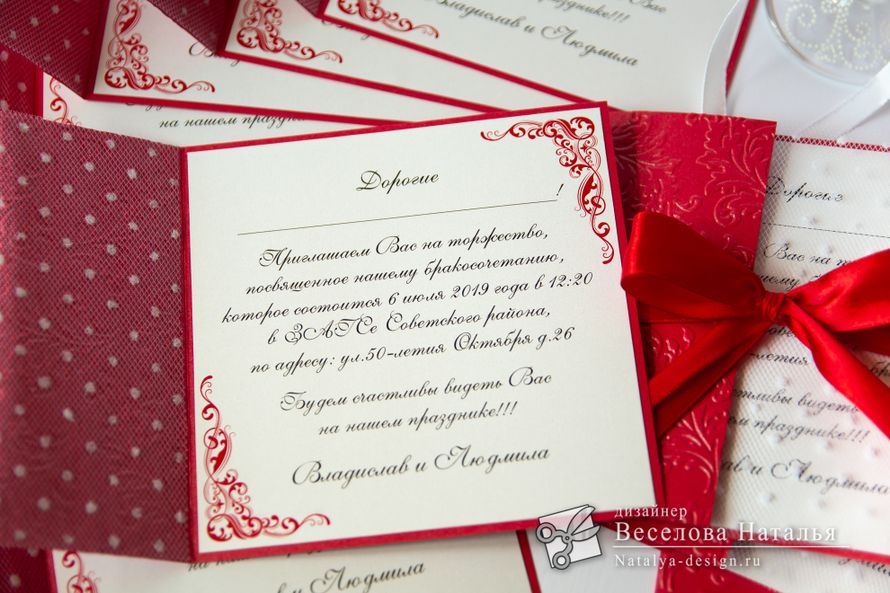 Вас
на нашем празднике!!!
Владислав и Людмила
на нашем празднике
Дорогие
!
Приглашаем Вас на торжество,
посвященное нашему бракосочетанию,
которое состоится 6 июля 2019 года в 12:20
в ЗАГСе Советского района,
по адресу: ул.50-летия Октября д.26
Будем счастливы видеть Вас
на нашем празднике!!!
Владислав и Людмила
Дорогие
Вас на
видеть
празднике!!!
и Людмила
Людмила
дизайнер
Веселова Наталья
Natalya-design.ru